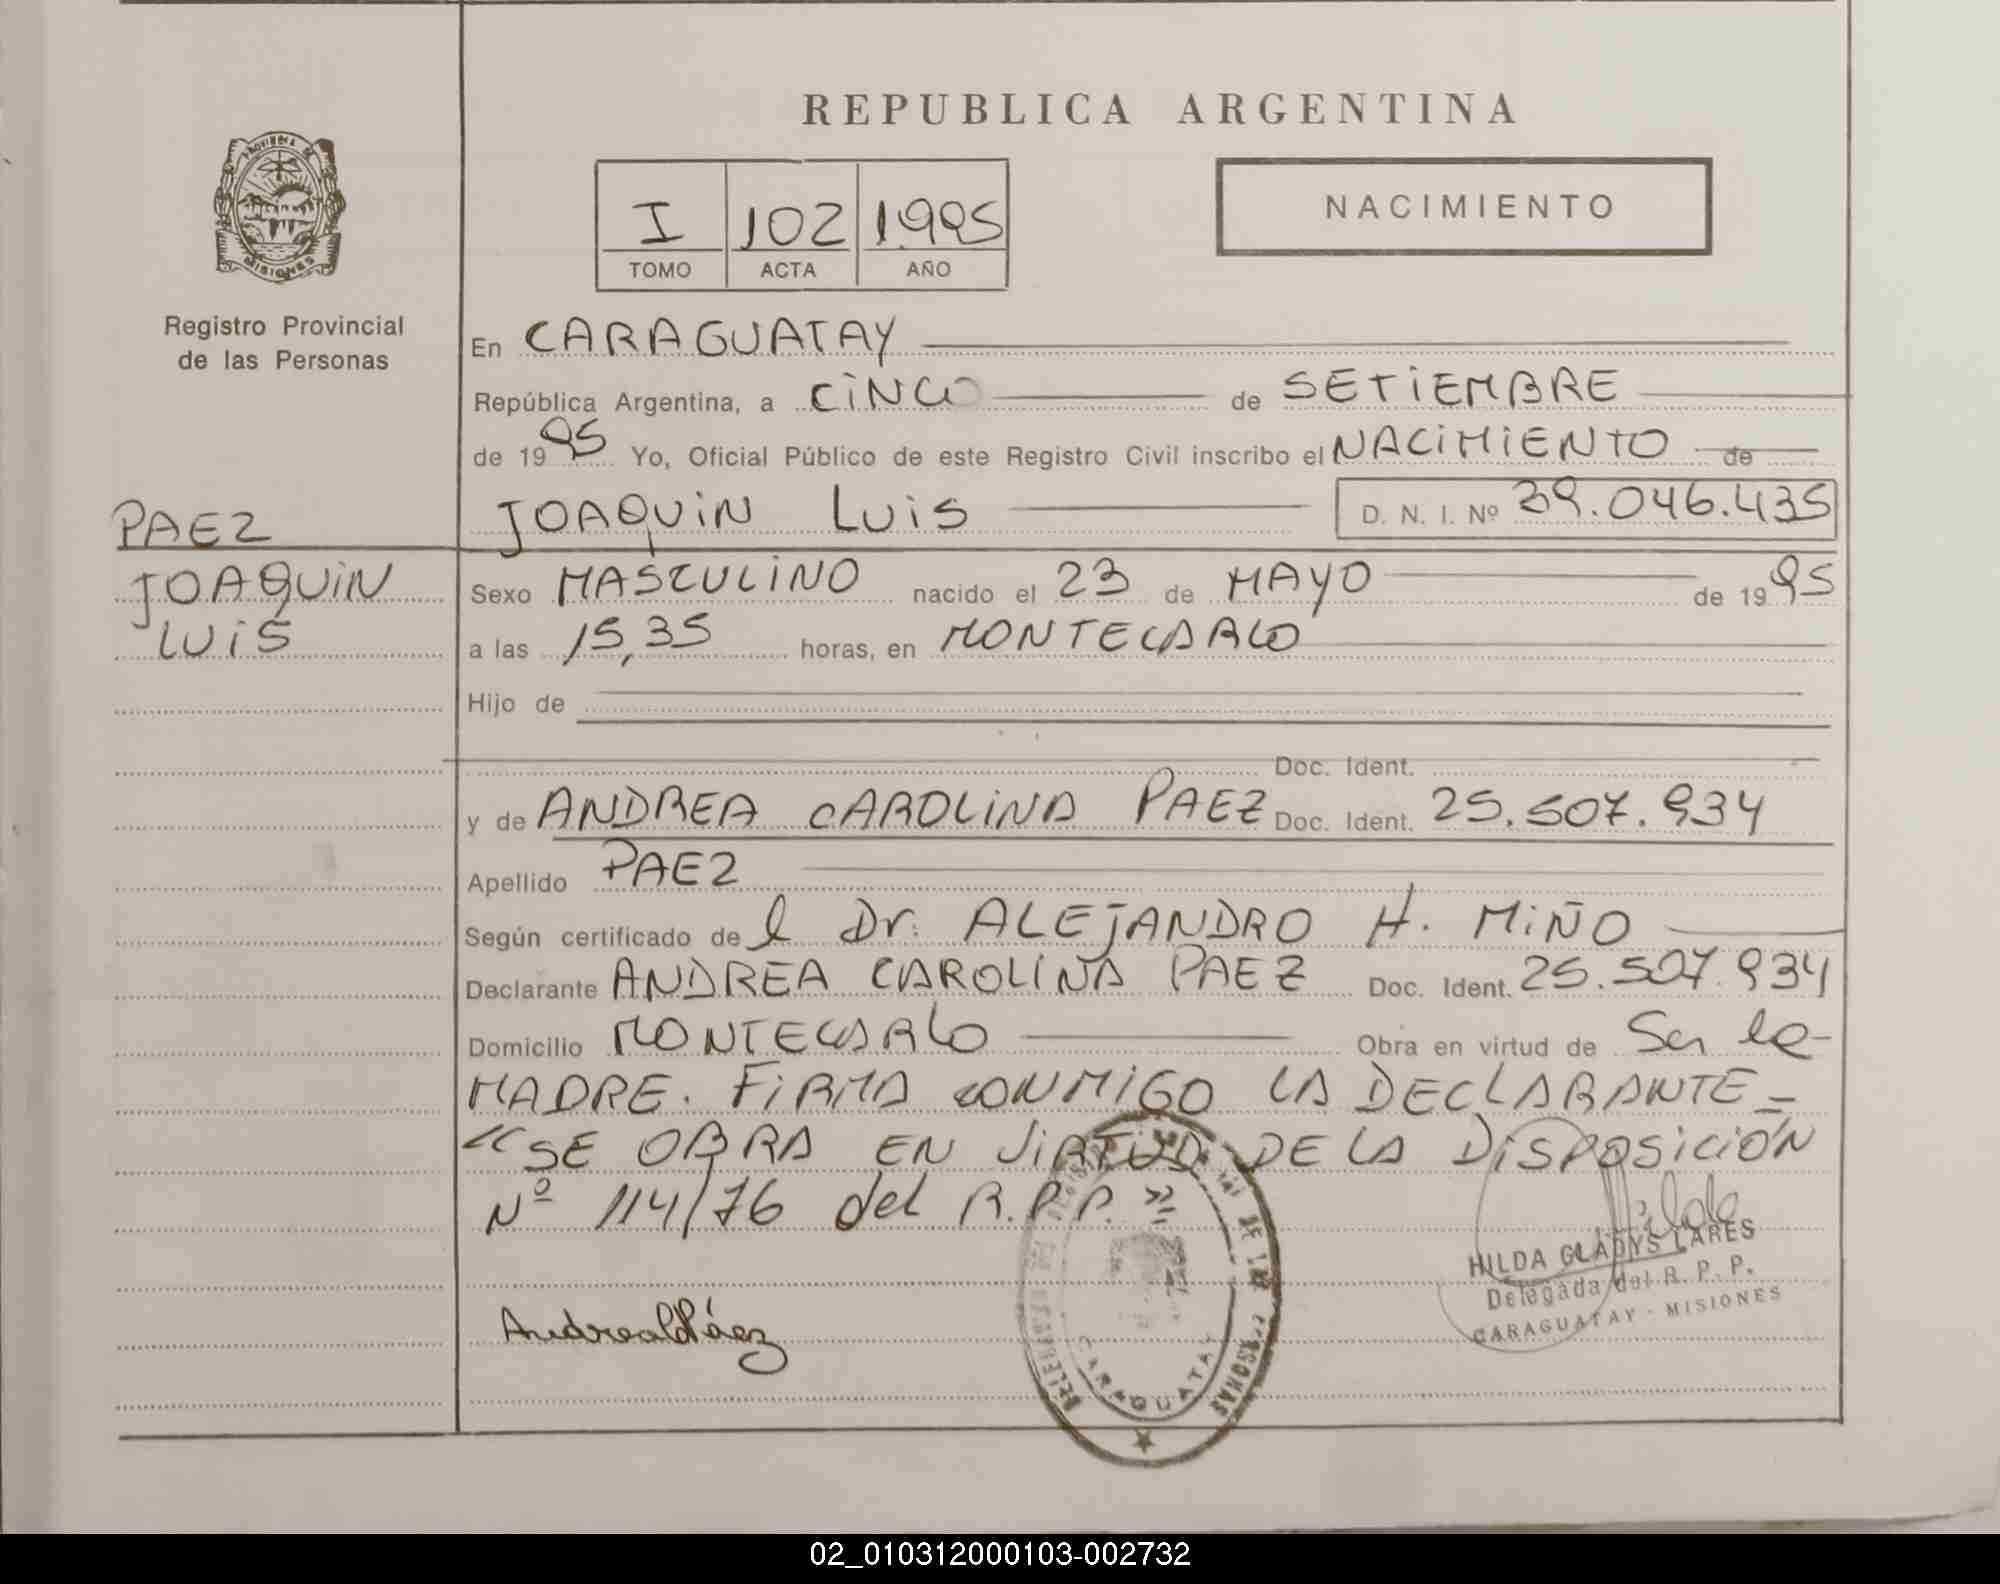 REPUBLICA ARGENTINA
PROVINCIA DE
MISIONES
I 102 1995
TOMO ACTA AÑO
NACIMIENTO
Registro Provincial
de las Personas
En CARAGUATAY
República Argentina, a CINCO de SETIEMBRE
de 1995 Yo, Oficial Público de este Registro Civil inscribo el NACIMIENTO de
JOAQUIN LUIS D. N. I. Nº 39.046.435
PAEZ
JOAQUIN
LUIS
Sexo MASCULINO nacido el 23 de MAYO de 1995
a las 15,35 horas, en MONTECARLO
Hijo de
Doc. Ident.
y de ANDREA CAROLINA PAEZ Doc. Ident. 25.507.934
Apellido PAEZ
Según certificado del Dr. ALEJANDRO H. MIÑO
Declarante ANDREA CAROLINA PAEZ Doc. Ident. 25.507.934
Domicilio MONTECARLO Obra en virtud de Ser la
MADRE. FIRMA CONMIGO LA DECLARANTE _
"SE OBRA EN VIRTUD DE LA DISPOSICIÓN
Nº 114/76 del R.P.P."
HILDA GLADYS LARES
Delegada del R. P. P.
CARAGUATAY - MISIONES
Andrea C Páez
CARAGUATAY
02_010312000103-002732